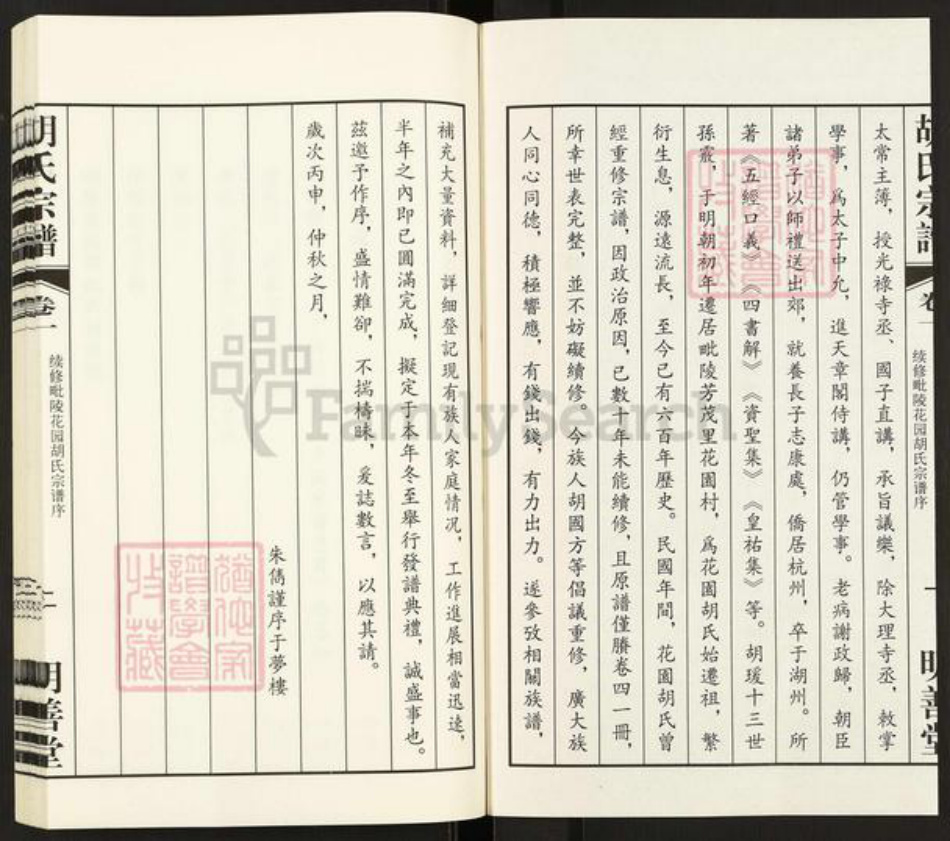 胡氏宗譜
卷一
续修毗陵花园胡氏宗谱序
一
明善堂
太常主薄，授光祿寺丞、國子直講，承旨議樂，除大理寺丞，敕掌
學事，爲太子中允，進天章閣侍講，仍管學事。老病謝政歸，朝臣
諸弟子以師禮送出郊，就養長子志康處，僑居杭州，卒于湖州。所
著《五經口義》《四書解》《資聖集》《皇祐集》等。胡瑗十三世
孫霰，于明朝初年遷居毗陵芳茂里花園村，爲花園胡氏始遷祖，繁
衍生息，源遠流長，至今已有六百年歷史。民國年間，花園胡氏曾
經重修宗譜，因政治原因，已數十年未能續修，且原譜僅賸卷四一冊，
所幸世表完整，並不妨礙續修。今族人胡國方等倡議重修，廣大族
人同心同德，積極響應，有錢出錢，有力出力。遂參攷相關族譜，
補充大量資料，詳細登記現有族人家庭情況，工作進展相當迅速，
半年之內即已圓滿完成，擬定于本年冬至舉行發譜典禮，誠盛事也。
茲邀予作序，盛情難卻，不揣檮昧，爰誌數言，以應其請。
歲次丙申，仲秋之月，
朱雋謹序于夢樓
胡氏宗譜
卷一
续修毗陵花园胡氏宗谱序
二
明善堂
猶他家
譜學會
收藏
猶他家
譜學會
收藏
FamilySearch